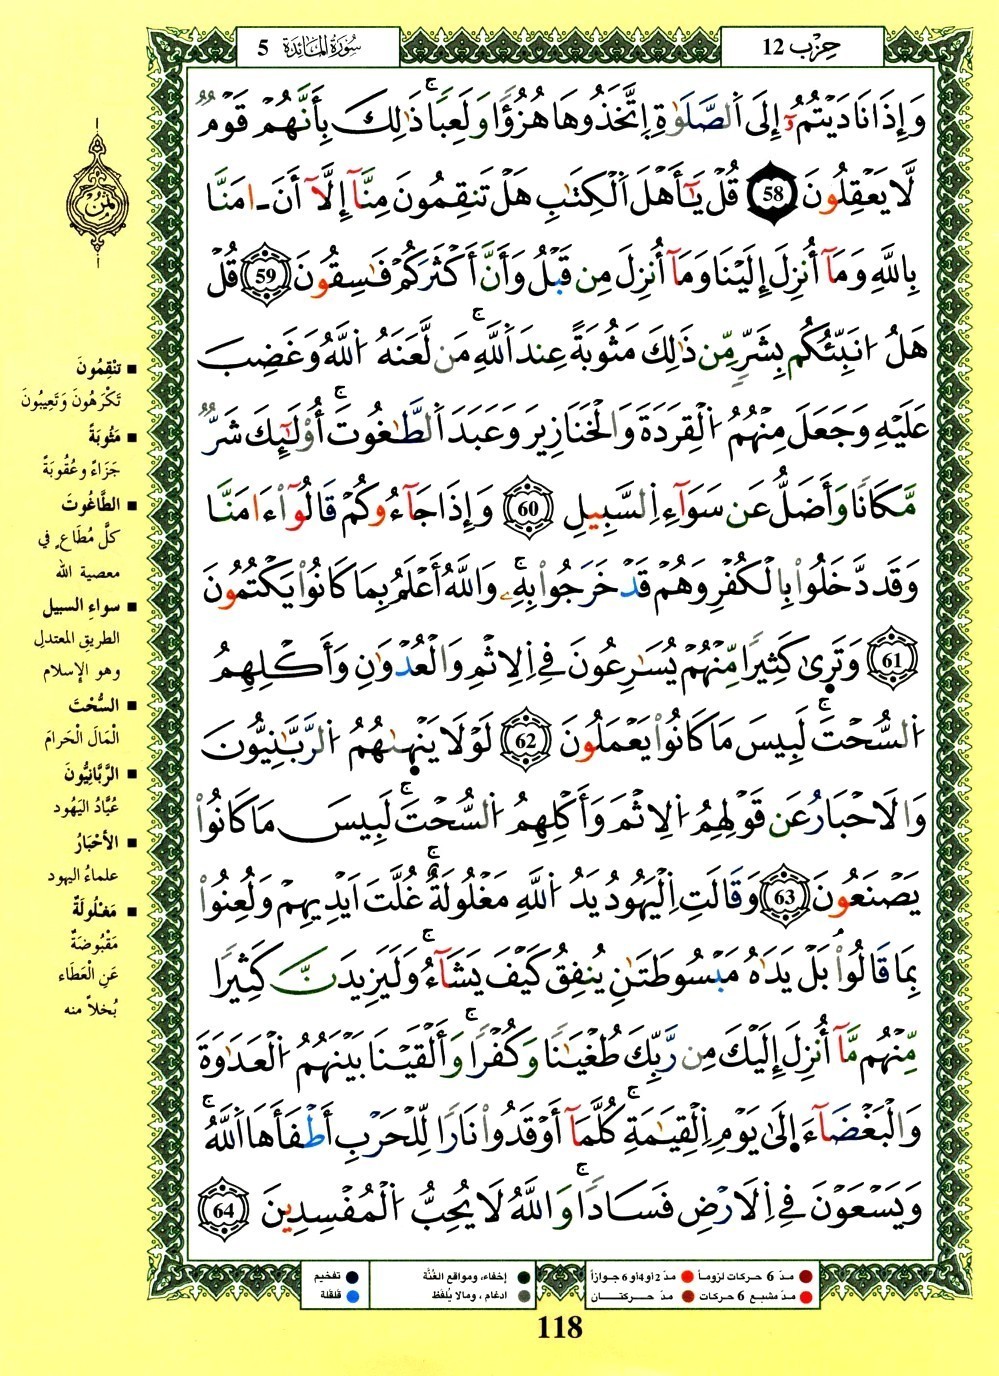 حِزْب 12
سُورَةُ المَائدَة 5
وَإِذَا نَادَيْتُمُۥٓ إِلَى اَ۬لصَّلَوٰةِ اِ۪تَّخَذُوهَا هُزُؤاٗ وَلَعِباٗۖ ذَٰلِكَ بِأَنَّهُمْ قَوْمٞ
لَّا يَعْقِلُونَ 58 قُلْ يَٰٓأَهْلَ اَ۬لْكِتَٰبِ هَلْ تَنقِمُونَ مِنَّآ إِلَّآ أَنَ ـ امَنَّا
بِاللَّهِ وَمَآ أُنزِلَ إِلَيْنَا وَمَآ أُنزِلَ مِن قَبْلُ وَأَنَّ أَكْثَرَكُمْ فَٰسِقُونَ 59 قُلْ
هَلُ انَبِّئُكُم بِشَرّٖ مِّن ذَٰلِكَ مَثُوبَةً عِندَ اَ۬للَّهِۖ مَن لَّعَنَهُ اُ۬للَّهُ وَغَضِبَ
عَلَيْهِ وَجَعَلَ مِنْهُمُ اُ۬لْقِرَدَةَ وَالْخَنَازِيرَ وَعَبَدَ اَ۬لطَّٰغُوتَۖ أُوْلَٰٓئِكَ شَرّٞ
مَّكَاناٗ وَأَضَلُّ عَن سَوَآءِ اِ۬لسَّبِيلِ 60 وَإِذَا جَآءُوكُمْ قَالُوٓاْ ءَامَنَّا
وَقَد دَّخَلُواْ بِالْكُفْرِ وَهُمْ قَدْ خَرَجُواْ بِهِۦۖ وَاللَّهُ أَعْلَمُ بِمَا كَانُواْ يَكْتُمُونَ
61 وَتَرىٰ كَثِيراٗ مِّنْهُمْ يُسَٰرِعُونَ فِے اِ۬لِاثْمِ وَالْعُدْوَٰنِ وَأَكْلِهِمُ
اُ۬لسُّحْتَۖ لَبِيسَ مَا كَانُواْ يَعْمَلُونَ 62 لَوْلَا يَنْهۭيٰهُمُ اُ۬لرَّبَّٰنِيُّونَ
وَالَاحْبَارُ عَن قَوْلِهِمُ اُ۬لِاثْمَ وَأَكْلِهِمُ اُ۬لسُّحْتَۖ لَبِيسَ مَا كَانُواْ
يَصْنَعُونَ 63 وَقَالَتِ اِ۬لْيَهُودُ يَدُ اُ۬للَّهِ مَغْلُولَةٌۖ غُلَّتَ اَيْدِيهِمْ وَلُعِنُواْ
بِمَا قَالُواْۘ بَلْ يَدَٰهُ مَبْسُوطَتَٰنِ يُنفِقُ كَيْفَ يَشَآءُۖ وَلَيَزِيدَنَّ كَثِيراٗ
مِّنْهُم مَّآ أُنزِلَ إِلَيْكَ مِن رَّبِّكَ طُغْيَٰناٗ وَكُفْراٗۖ وَأَلْقَيْنَا بَيْنَهُمُ اُ۬لْعَدَٰوَةَ
وَالْبَغْضَآءَ اِ۪لَىٰ يَوْمِ اِ۬لْقِيَٰمَةِۖ كُلَّمَآ أَوْقَدُواْ نَاراٗ لِّلْحَرْبِ أَطْفَأَهَا اَ۬للَّهُۖ
وَيَسْعَوْنَ فِے اِ۬لَارْضِ فَسَاداٗۖ وَاللَّهُ لَا يُحِبُّ اُ۬لْمُفْسِدِينَ 64
ثُمُن
■ تَنْقِمُونَ
تَكْرَهُونَ وَتَعِيبُونَ
■ مَثُوبَةً
جَزَاءً وعُقُوبَةً
■ الطَّاغُوتَ
كلَّ مُطَاعٍ في
معصية الله
■ سواءِ السبيل
الطريقِ المعتدلِ
وهو الإسلام
■ السُّحْتَ
الْمَالَ الْحَرامَ
■ الرَّبَّانِيُّونَ
عُبَّادُ اليَهُود
■ الأحْبَارُ
علماءُ اليهود
■ مَغْلُولَةٌ
مَقْبُوضَةٌ
عَنِ الْعَطَاء
بُخلاً منه
مدّ 6 حركات لزوماً
مدّ 2 أو 4 أو 6 جوازاً
مدّ مشبع 6 حركات
مدّ حركتان
إخفاء، ومواقع الغُنَّة
ادغام ، ومالا يُلفَظ
تفخيم
قلقلة
118